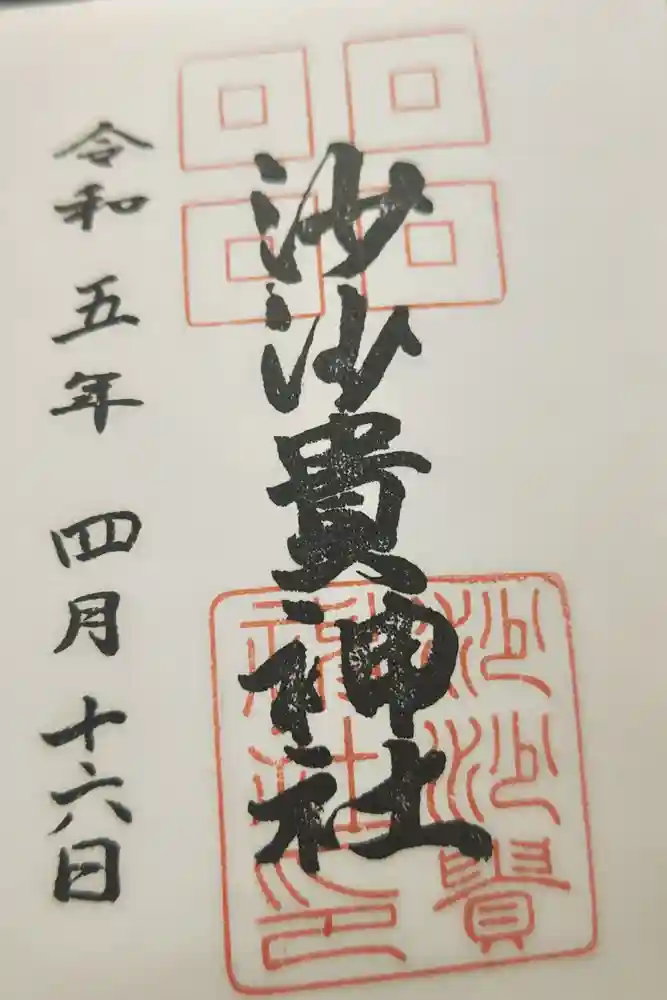 沙沙貴神社
令和五年四月十六日
沙沙貴
神社之印